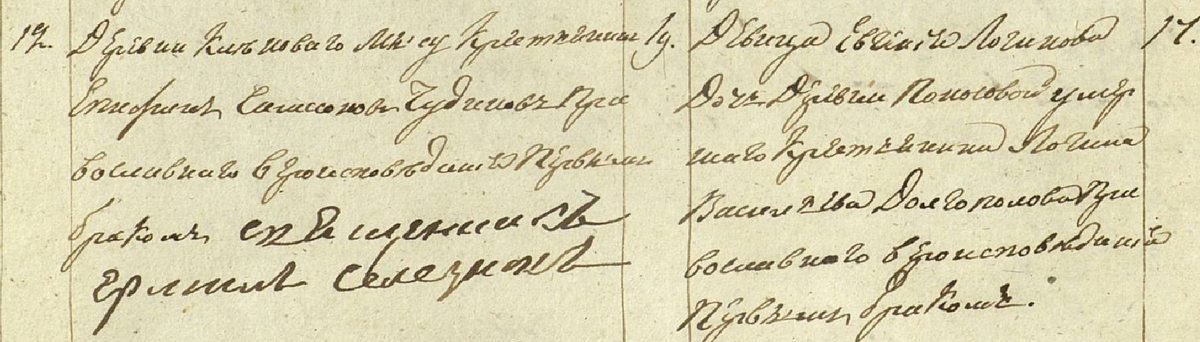 12.
Деревни Клеповаго Мысу Крестьянинъ
Епифанъ Самсоновъ Чудиновъ Пра
вославнаго вероисповѣданія Первымъ
бракомъ священникъ
Ермилъ Селезневъ
19.
Девица Евгенія Логинова
Дочь Деревни Пологовой умер
шаго Крестьянина Логина
Васильева Долгополова Пра
вославнаго вероисповѣданія
Первымъ бракомъ.
17.